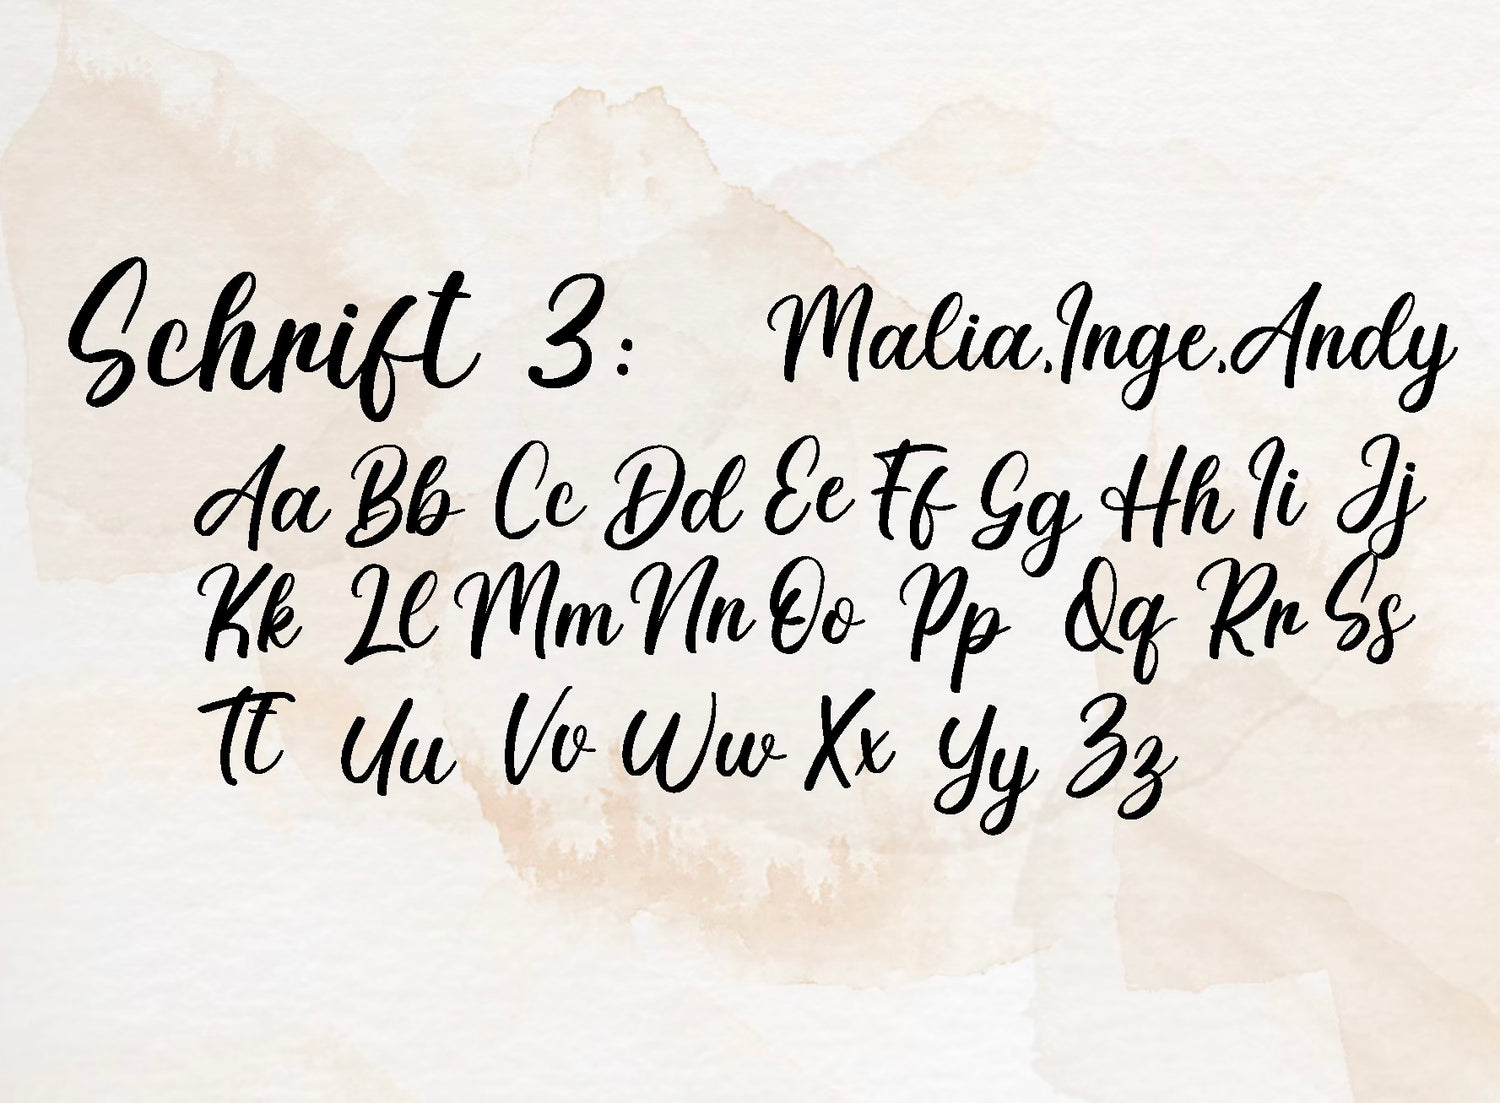 Schrift 3: Malia.Inge.Andy
Aa Bb Cc Dd Ee Ff Gg Hh Ii Jj
Kk Ll Mm Nn Oo Pp Qq Rr Ss
Tt Uu Vv Ww Xx Yy Zz